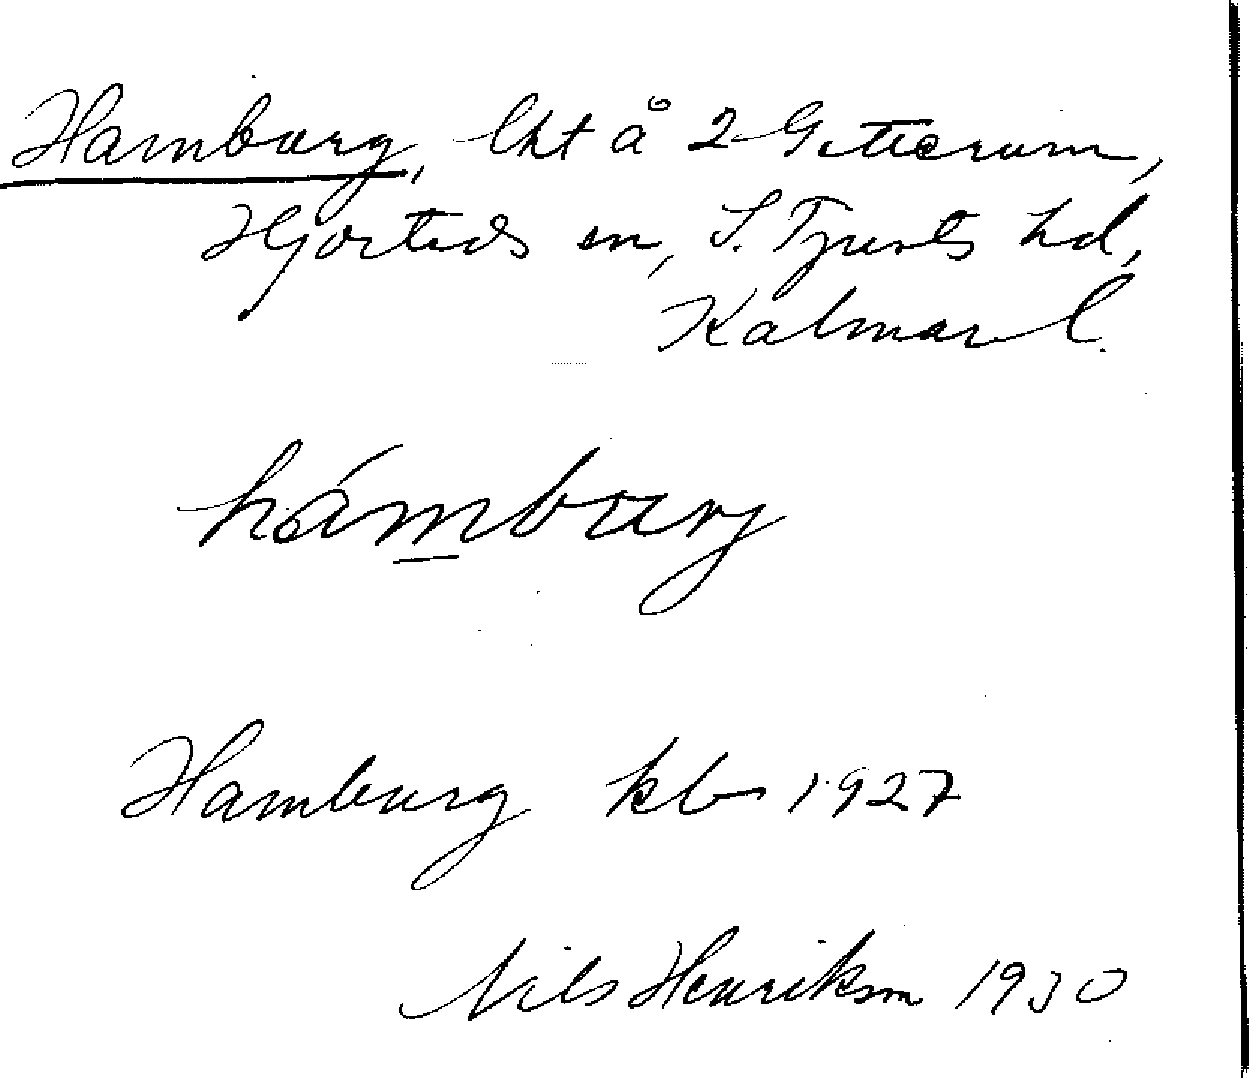 Hamburg, lht å 2 Getterum,
Hjorteds sn, S. Tjusts hd,
Kalmar l.
hámburg
Hamburg kb 1927
Nils Henrikson 1930